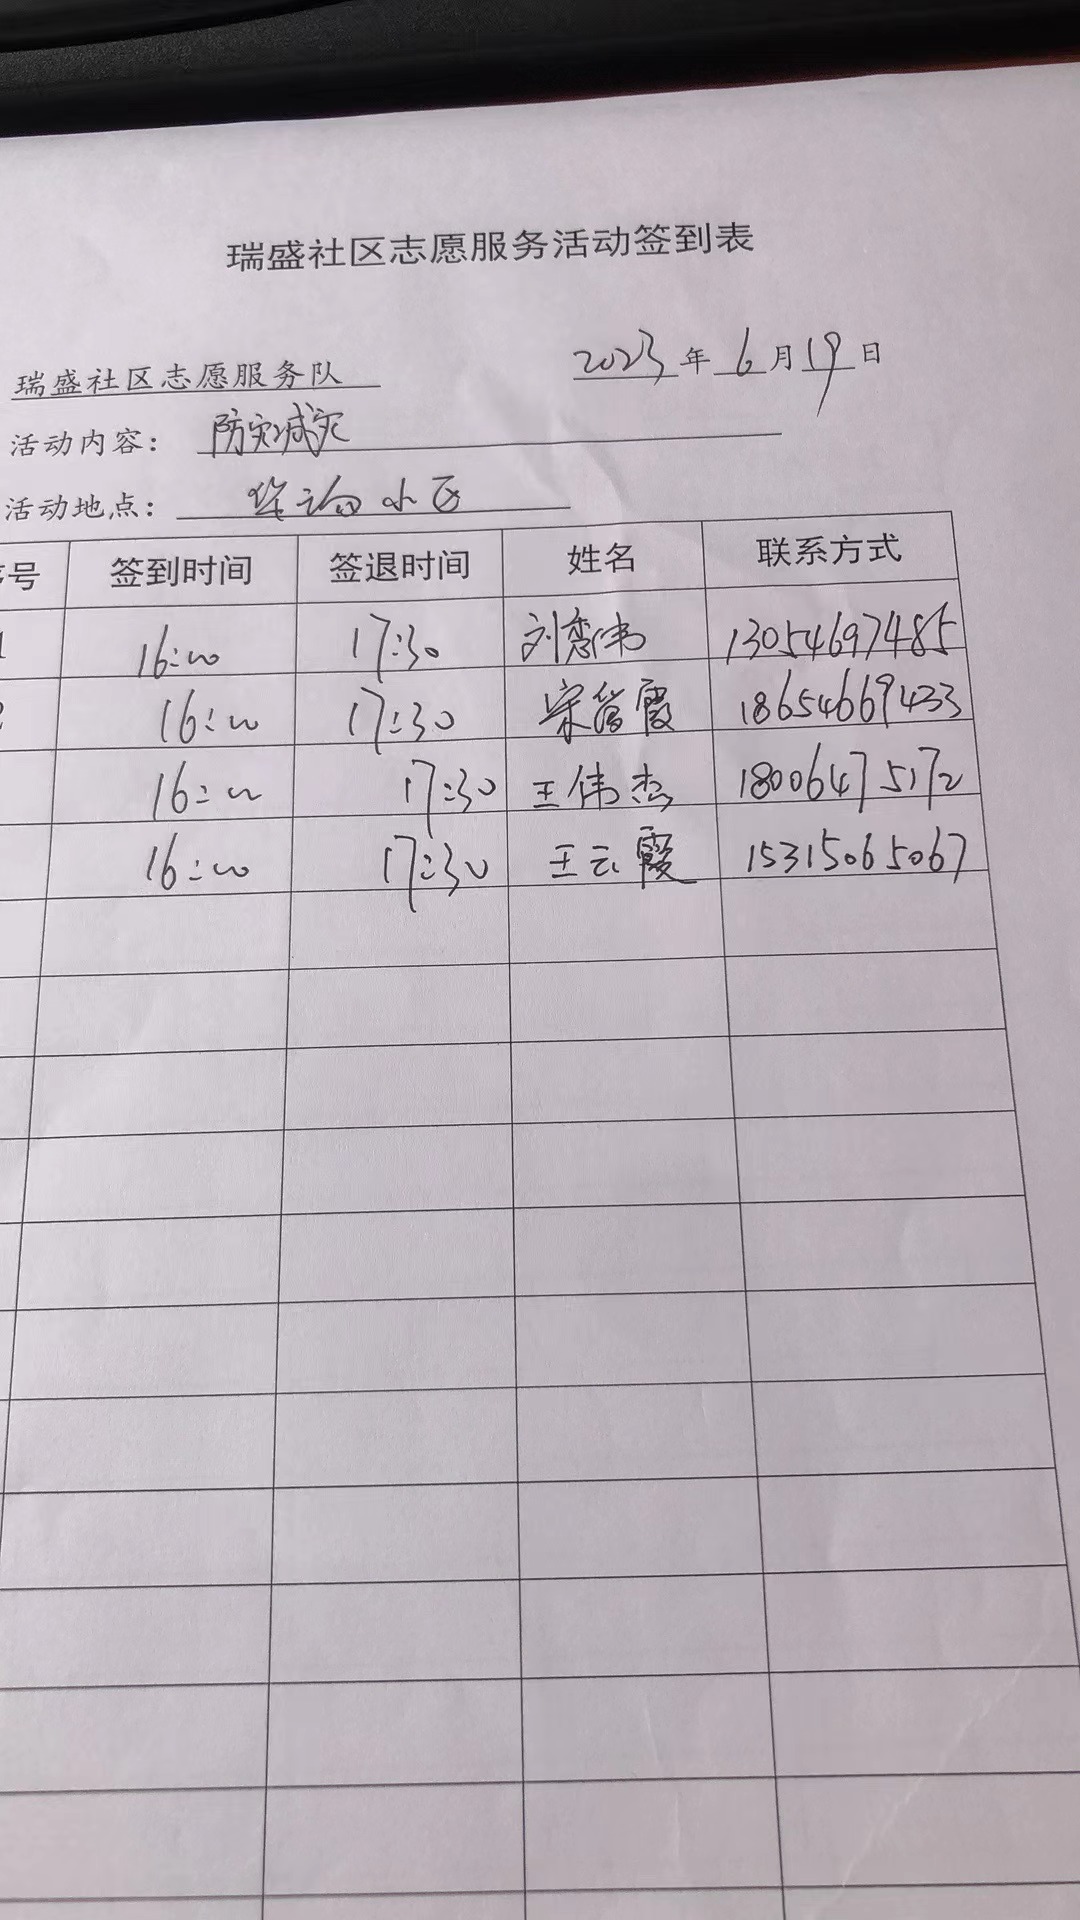 瑞盛社区志愿服务活动签到表
瑞盛社区志愿服务队 2023年6月19日
活动内容：防灾减灾
活动地点：小区
序号 签到时间 签退时间 姓名 联系方式
1 16:00 17:30 刘伟 13054697485
2 16:00 17:30 宋霞 18654669433
16:00 17:30 王伟杰 18006475172
16:00 17:30 王云霞 15315065067